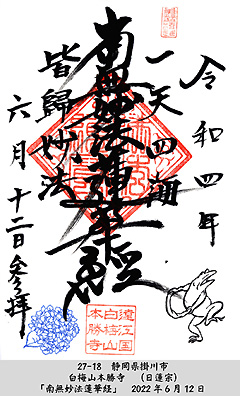 令和四年
一天四海
南無妙法蓮華経
皆歸妙法
六月十二日参拝
遠江国
白梅山
本勝寺
27-18 静岡県掛川市
白梅山本勝寺 (日蓮宗)
「南無妙法蓮華経」 2022年6月12日